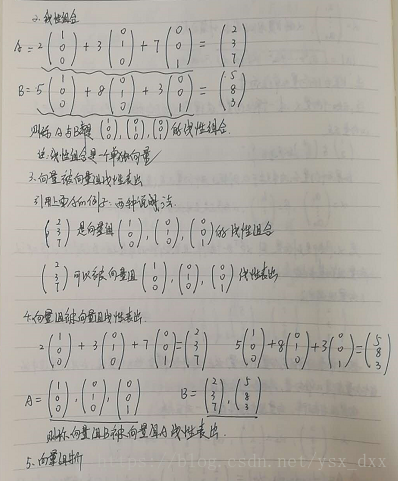 2. 线性组合
A = 2 (1 0 0) + 3 (0 1 0) + 7 (0 0 1) = (2 3 7)
B = 5 (1 0 0) + 8 (0 1 0) + 3 (0 0 1) = (5 8 3)
则称 A与B是 (1 0 0), (0 1 0), (0 0 1) 的线性组合.
线性组合是一个单独向量
3. 向量被向量组线性表出
引用上面的例子. 两种说法.
(2 3 7) 是向量组 (1 0 0), (0 1 0), (0 0 1) 的线性组合
(2 3 7) 可以被向量组 (1 0 0), (0 1 0), (0 0 1) 线性表出
4. 向量组被向量组线性表出.
2 (1 0 0) + 3 (0 1 0) + 7 (0 0 1) = (2 3 7) 5 (1 0 0) + 8 (0 1 0) + 3 (0 0 1) = (5 8 3)
A = (1 0 0), (0 1 0), (0 0 1) B = (2 3 7), (5 8 3)
则称向量组B被向量组A线性表出.
5. 向量组
https://blog.csdn.net/ysx_dxx